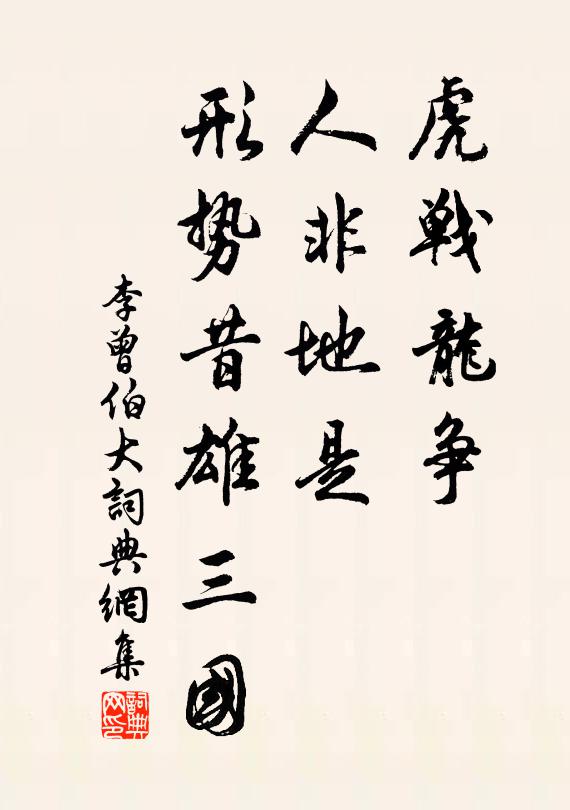 虎戦龍争
人非地是
形势昔雄三國
李曾伯大詞典網集
詞典網印